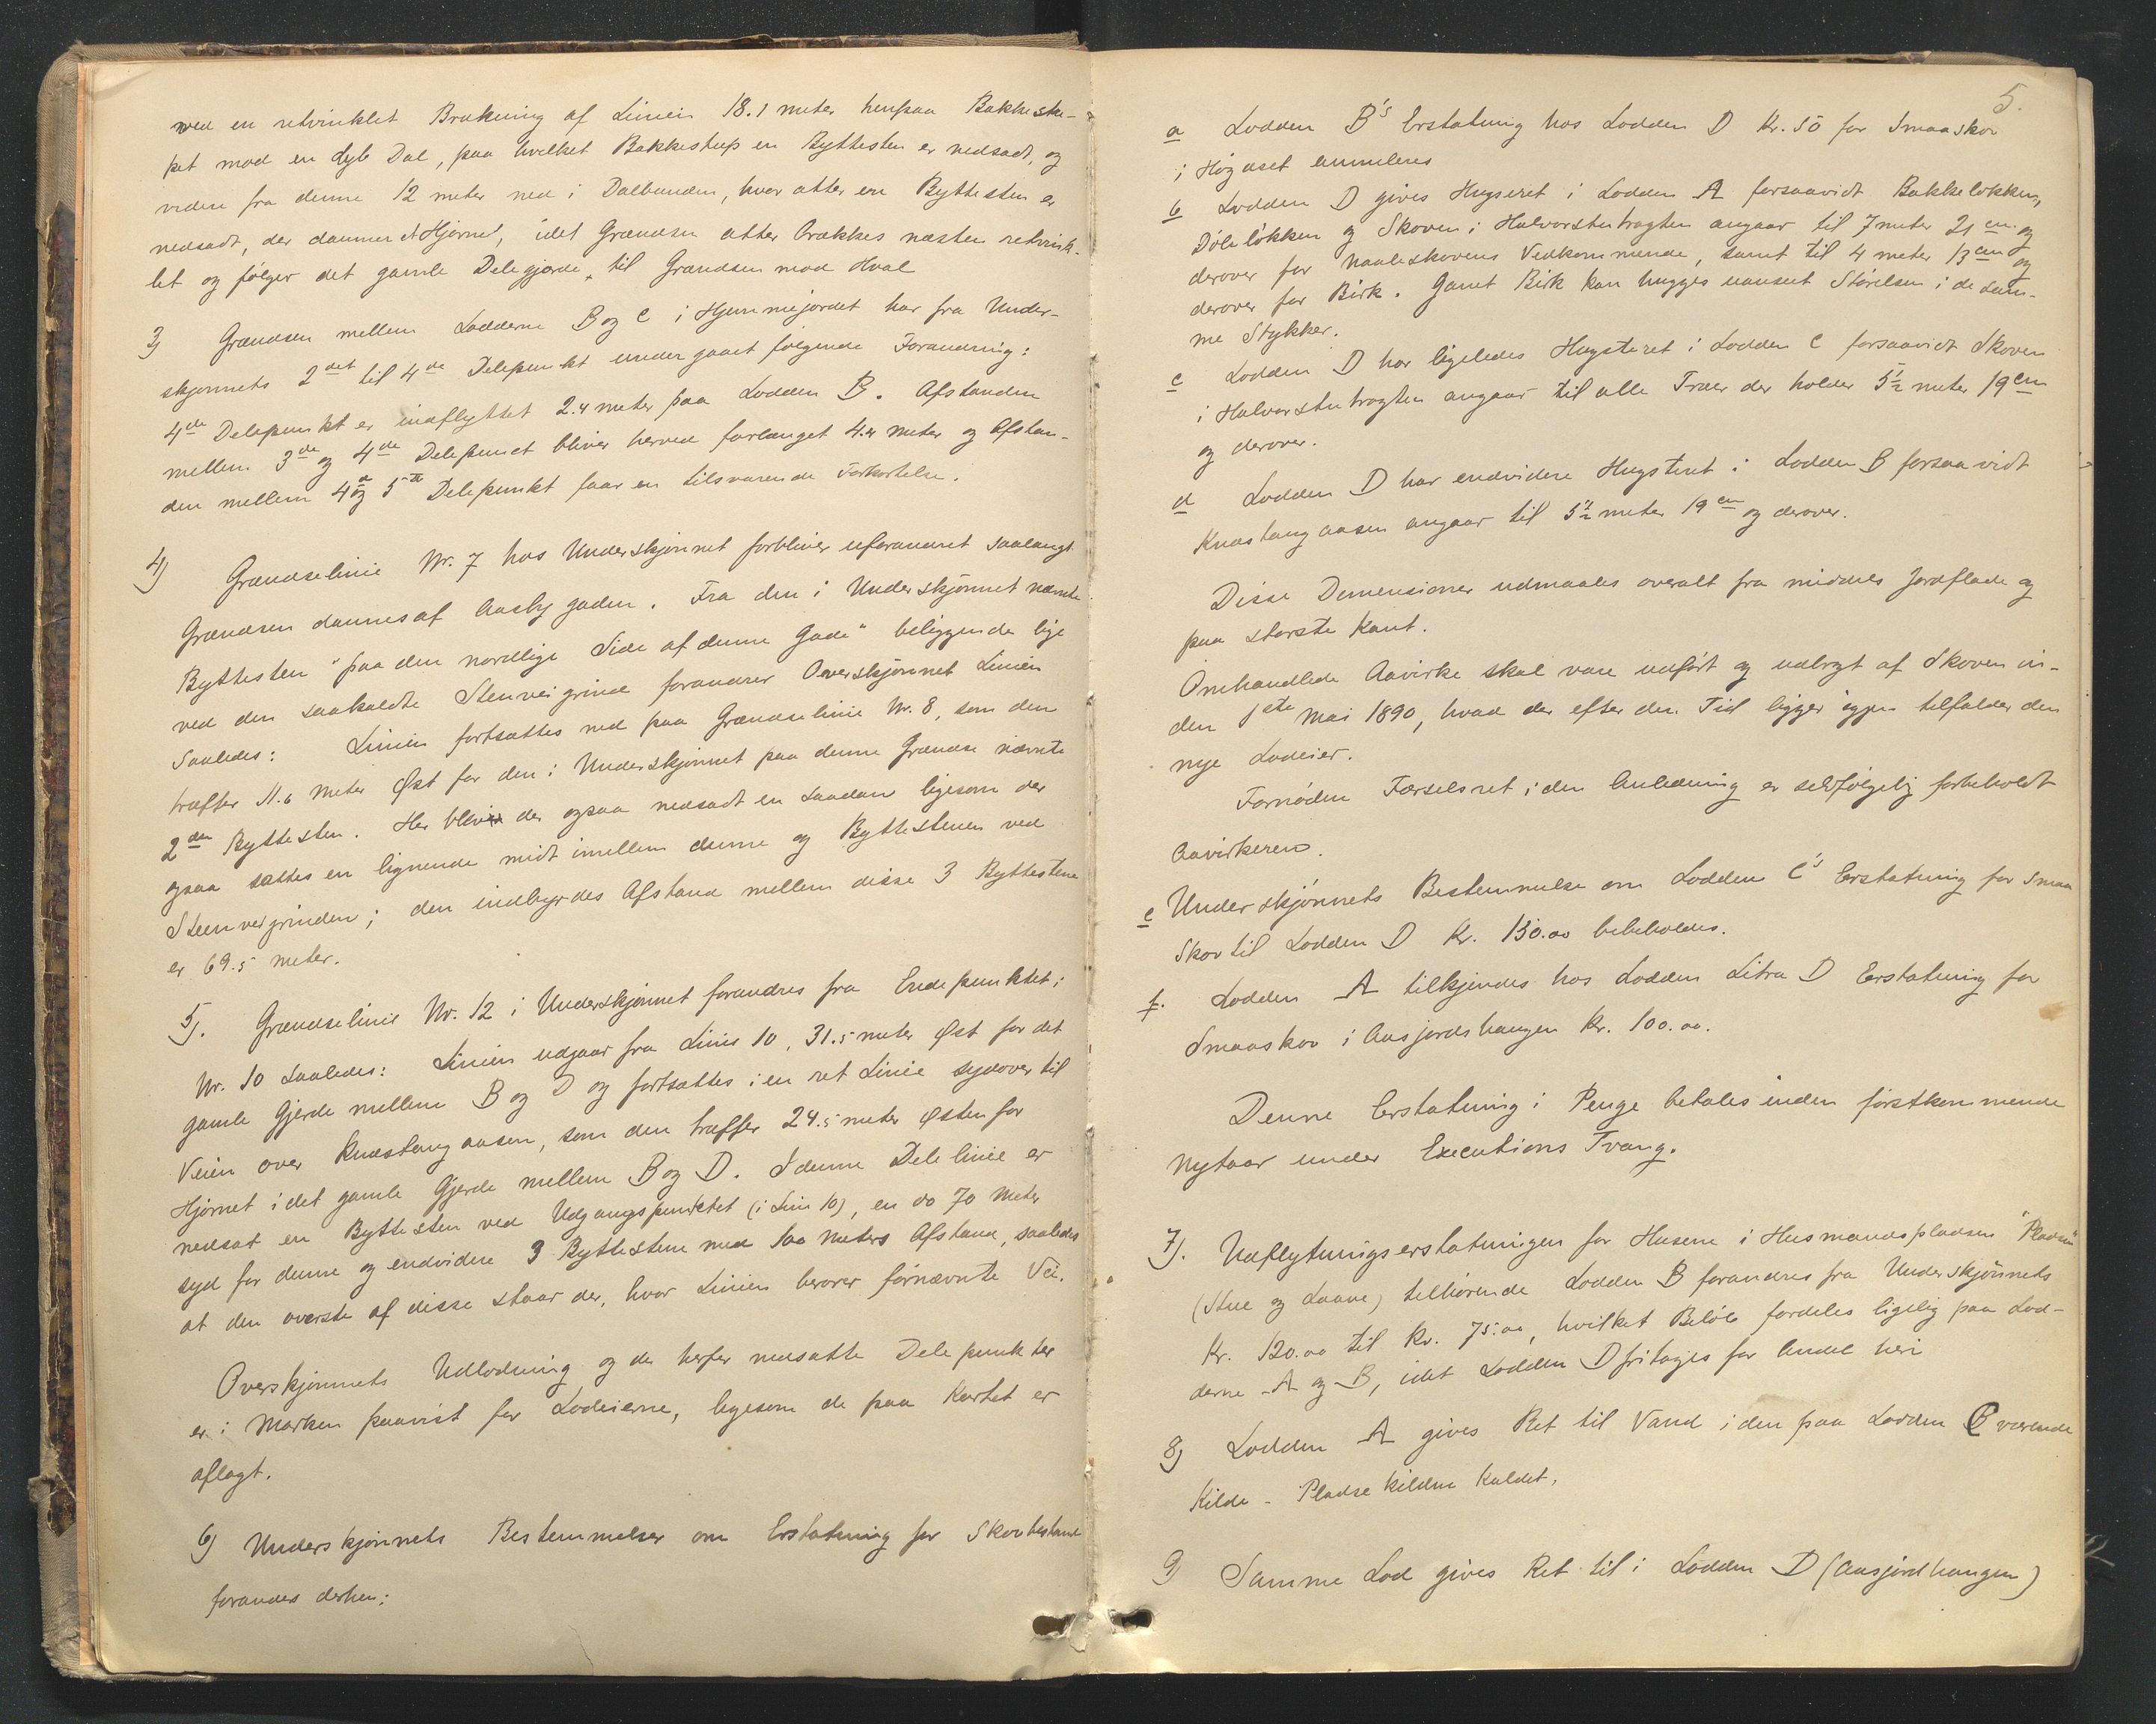 ved en retvinklet Brækning af Linien 18.1 meter henpaa Bakkeste-
pet mod en dyb Dal, paa hvilket Bakkestup en Byttesten er nedsadt, og
videre fra denne 12 meter ned i Dalbunden, hvor atter en Byttesten er
nedsadt, der danner et Hjørne, idet Grændsen atter brækkes næsten retvink-
let og følger det gamle Delegjærde, til Grændsen mod Hval
3) Grændsen mellem Lodderne B og C i Hjemmejordet har fra Under-
skjønnets 2det til 4de Delepunkt undergaaet følgende Forandring:
4de Delepunkt er indflyttet 2.4 meter paa Lodden B. Afstanden
mellem 3de og 4de Delepunct bliver herved forlænget 4.4 meter og Afstan-
den mellem 4de og 5te Delepunkt faar en tilsvarende Forkortelse.
4) Grændselinie Nr. 7 hos Underskjønnet forbliver uforandret saalangt
Grændsen dannes af Aasbygaden. Fra den i Underskjønnet nævnte
Byttesten "paa den nordlige Side af denne Gade" beliggende lige
ved den saakaldte Stenveigrind forandrer Overskjønnet Linien
saaledes: Linien fortsættes ned paa Grændselinie Nr. 8, som den
træffer 11.6 meter Øst for den i Underskjønnet paa denne Grændse nævnte
2den Byttesten. Her bliver der ogsaa nedsadt en saadan ligesom der
ogsaa sættes en lignende midt imellem denne og Byttestenen ved
Steenveigrinden; den indbyrdes Afstand mellem disse 3 Byttestene
er 69.5 meter.
5). Grændselinie Nr. 12 i Underskjønnet forandres fra Endepunktet i
Nr. 10 saaledes: Linien udgaar fra Linie 10, 31.5 meter Øst for det
gamle Gjerde mellem B og D og fortsættes i en ret Linie sydover til
Veien over Knæstangaasen, som den træffer 24.5 meter Østen for
Hjørnet i det gamle Gjerde mellem B og D. I denne Delelinie er
nedsat en Byttesten ved Udgangspunktet (i Linie 10), en do 70 meter
syd for denne og endvidere 3 Byttestene med 100 meters Afstand, saaledes
at den øverste af disse staar der, hvor Linien berører førnævnte Vei.
Overskjønnets Udlodning og de herfor nedsatte Delepunkter
er i Marken paavist for Lodeierne, ligesom de paa Kartet er
aflagt.
6) Underskjønnets Bestemmelser om Erstatning for Skovbestand
forandres derhen:
5.
a Lodden B's Erstatning hos Lodden D Kr. 50 for Smaaskov
i Høgaset annuleres
b Lodden D gives Hugseret i Lodden A forsaavidt Bakkeløkken,
Døleløkken og Skoven i Halvorstutragten angaar til 7 meter 21 cm og
derover for Naaleskovens Vedkommende, samt til 4 meter 13 cm og
derover for Birk. Gamt Birk kan hugges uanseet Størelsen i de sam-
me Stykker.
c Lodden D har ligeledes Hugsteret i Lodden C forsaavidt Skoven
i Halvorstutragten angaar til alle Træer der holder 5½ meter 19 cm
og derover.
d Lodden D har endvidere Hugsteret i Lodden B forsaavidt
Knæstangaasen angaar til 5½ meter 19 cm og derover.
Disse Dimensioner udmaales overalt fra middels Jordflade og
paa største Kant.
Omhandlede Aavirke skal være udført og udbragt af Skoven in-
den 1ste Mai 1890, hvad der efter den Tid ligger igjen tilfalder den
nye Lodeier.
Fornøden Færselsret i den Anledning er selvfølgelig forbeholdt
Aavirkeren.
e Underskjønnets Bestemmelse om Lodden C's Erstatning for Smaa
Skov til Lodden D Kr. 130.00 bibeholdes.
f. Lodden A tilkjendes hos Lodden Litra D Erstatning for
Smaaskov i Aasjordshaugen Kr. 100.00.
Denne Erstatning i Penge betales inden førstkommende
Nytaar under Executions Tvang.
7). Udflytningserstatningen for Husene i Husmandspladsen "Pladsen"
(Stue og Laave) tilhørende Lodden B forandres fra Underskjønnets
Kr. 120.00 til Kr. 75.00, hvilket Beløb fordeles ligelig paa Lod-
derne A og B, idet Lodden D fritages for Andel heri
8) Lodden A gives Ret til Vand i den paa Lodden C værende
Kilde - Pladsekilden kaldet.
9) Samme Lod gives Ret til i Lodden D (Aasjordhaugen)